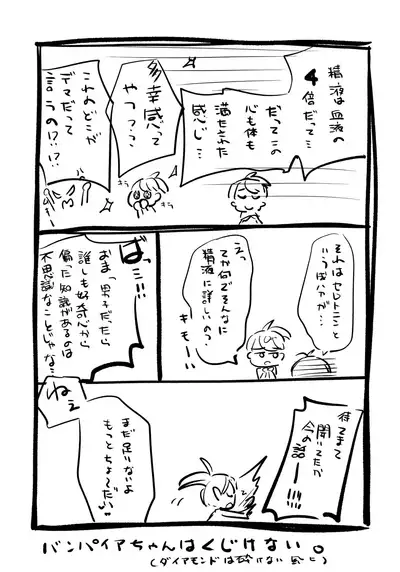 精液は血液の
4
倍だって…
だってこの
心も体も
満たされた
感じ…
多幸感って
やつ??
これのどこが
デマだって
言うの!?!?
キラ
キラ
それはセレトニンと
いうばハカが…
えっ
てか何でそんなに
精液に詳しいの?
キモー…
ばっ…
おまっ男子だったら
誰しも好奇心から
偏った知識があるのは
不思議なことじゃな…
待てまて
聞いてたか
今の
話ー!!!
ねぇ
まだ足りないよ
もっとちょーだい♡
バンパイアちゃんはくじけない。
(ダイアモンドは砕けない風に)